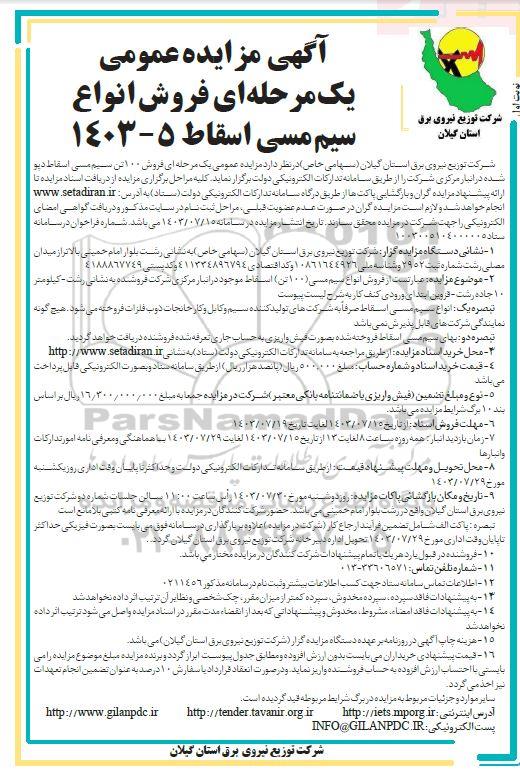 نوبت اول
آگهی مزایده عمومی
یک‌مرحله‌ای فروش انواع
سیم مسی اسقاط ۵-۱۴۰۳
شرکت توزیع نیروی برق
استان گیلان
شرکت توزیع نیروی برق استان گیلان (سهامی خاص) در نظر دارد مزایده عمومی یک مرحله ای فروش ۱۰۰ تن سیم مسی اسقاط دپو
شده در انبار مرکزی شرکت را از طریق سامانه تدارکات الکترونیکی دولت برگزار نماید. کلیه مراحل برگزاری مزایده از دریافت اسناد مزایده تا
ارائه پیشنهاد مزایده گران و بازگشایی پاکت ها از طریق درگاه سامانه تدارکات الکترونیکی دولت (ستاد) به آدرس: www.setadiran.ir
انجام خواهد شد و لازم است مزایده گران در صورت عدم عضویت قبلی، مراحل ثبت نام در سایت مذکور و دریافت گواهی امضای
الکترونیکی را جهت شرکت در مزایده محقق سازند. تاریخ انتشار مزایده در سامانه ۱۴۰۳/۰۷/۱۵ می باشد. شماره فراخوان در سامانه
ستاد
۱- نشانی دستگاه مزایده گزار: شرکت توزیع نیروی برق استان گیلان (سهامی خاص) به نشانی رشت بلوار امام خمینی بالاتر از میدان
مصلی رشت شماره ثبت ۲۹۵۲ و شناسه ملی ۱۰۸۶۱۶۴۴۹۲۶ و کد اقتصادی ۴۱۱۳۳۴۸۹۶۷۹۴ و کدپستی ۴۱۸۸۸۶۷۷۴۹
۲- موضوع مزایده: عبارتست از فروش انواع سیم مسی (۱۰۰ تن) اسقاط موجود در انبار مرکزی شرکت فروشنده به نشانی رشت - کیلومتر
۱۰ جاده رشت - قزوین ابتدای ورودی کنف کار به شرح لیست پیوست
تبصره یک: انواع سیم مسی اسقاط صرفاً به شرکت های تولیدکننده سیم و کابل و کارخانجات ذوب فلزات فروخته می شود. هیچ گونه
نمایندگی شرکت های قابل پذیرش نمی باشد
تبصره دو: بهای سیم مسی اسقاط فروخته شده بصورت فیش واریزی به حساب جاری تعرفه شده فروشنده دریافت خواهد گردید.
۳- محل خرید اسناد مزایده: از طریق مراجعه به سامانه تدارکات الکترونیکی دولت (ستاد) به نشانی http://www.setadiran.ir
۴- قیمت خرید اسناد و شماره حساب: مبلغ ۵۰۰,۰۰۰ ریال (پانصد هزار ریال) از طریق سامانه ستاد و بصورت الکترونیکی قابل پرداخت
می باشد
۵- نوع و مبلغ تضمین (فیش واریزی یا ضمانتنامه بانکی معتبر) شرکت در مزایده جمعا به مبلغ ۱۶,۳۰۰,۰۰۰,۰۰۰ ریال بر اساس
بند ۱۰ برگ شرایط مزایده می باشد.
۶- مهلت فروش اسناد: از تاریخ ۱۴۰۳/۰۷/۱۵ لغایت تاریخ ۱۴۰۳/۰۷/۱۹
۷- زمان بازدید انبار: همه روزه ساعت ۸ لغایت ۱۳ از تاریخ ۱۴۰۳/۰۷/۱۵ لغایت ۱۴۰۳/۰۷/۲۹ با هماهنگی و معرفی نامه امور تدارکات
وانبارها
۸- محل تحویل و مهلت پیشنهاد قیمت: از طریق سامانه تدارکات الکترونیکی دولت و حداکثر تا پایان وقت اداری روز یکشنبه
مورخ ۱۴۰۳/۰۷/۲۹
۹- تاریخ و مکان بازگشائی پاکات مزایده: روز دوشنبه مورخ ۱۴۰۳/۰۷/۳۰ رأس ساعت ۱۱:۰۰ سالن جلسات شماره دو شرکت توزیع
نیروی برق استان گیلان واقع در رشت بلوار امام خمینی می باشد. حضور شرکت کنندگان در مزایده با ارائه معرفی نامه کتبی بلامانع است
تبصره: پاکت الف شامل تضمین فرآیند ارجاع کار (شرکت در مزایده) علاوه بر بارگذاری در سامانه فوق می بایست بصورت فیزیکی حداکثر
تا پایان وقت اداری مورخ ۱۴۰۳/۰۷/۲۹ تحویل اداره دبیرخانه شرکت توزیع نیروی برق استان گیلان گردد.
۱۰- فروشنده در قبول یا رد هریک یا تمام پیشنهادات شرکت کنندگان در مزایده مختار می باشد.
۱۱- شماره تلفن تماس: ۳۳۶۰۶۵۷۱-۰۱۳
۱۲- اطلاعات تماس سامانه ستاد جهت کسب اطلاعات بیشتر و ثبت نام در سامانه مذکور ۰۲۱۱۴۵۶
۱۳- به پیشنهادات فاقد سپرده، سپرده مخدوش، سپرده کمتر از میزان مقرر، چک شخصی و نظایر آن ترتیب اثر داده نخواهد شد
۱۴- به پیشنهادات فاقد امضاء، مشروط، مخدوش و پیشنهاداتی که بعد از انقضاء مدت مقرر در اسناد مزایده واصل می شود ترتیب اثر داده
نخواهد شد
۱۵- هزینه چاپ آگهی در روزنامه بر عهده دستگاه مزایده گزار (شرکت توزیع نیروی برق استان گیلان) می باشد.
۱۶- قیمت پیشنهادی خریداران می بایست بدون ارزش افزوده و مطابق جدول پیوست ابراز گردد و برنده مزایده مبلغ موضوع مزایده را می
بایستی با احتساب ارزش افزوده به حساب فروشنده واریز نماید. و درصورت انعقاد قرارداد یا سفارش ۱۰ درصد به عنوان تضمین انجام تعهدات
نیز اخذ می گردد.
سایر موارد و جزئیات مربوط به مزایده در برگ شرایط مربوطه قید گردیده است.
آدرس اینترنتی: http://iets.mporg.ir http://tender.tavanir.org.ir http://www.gilanpdc.ir
پست الکترونیکی: INFO@GILANPDC.IR
شرکت توزیع نیروی برق استان گیلان